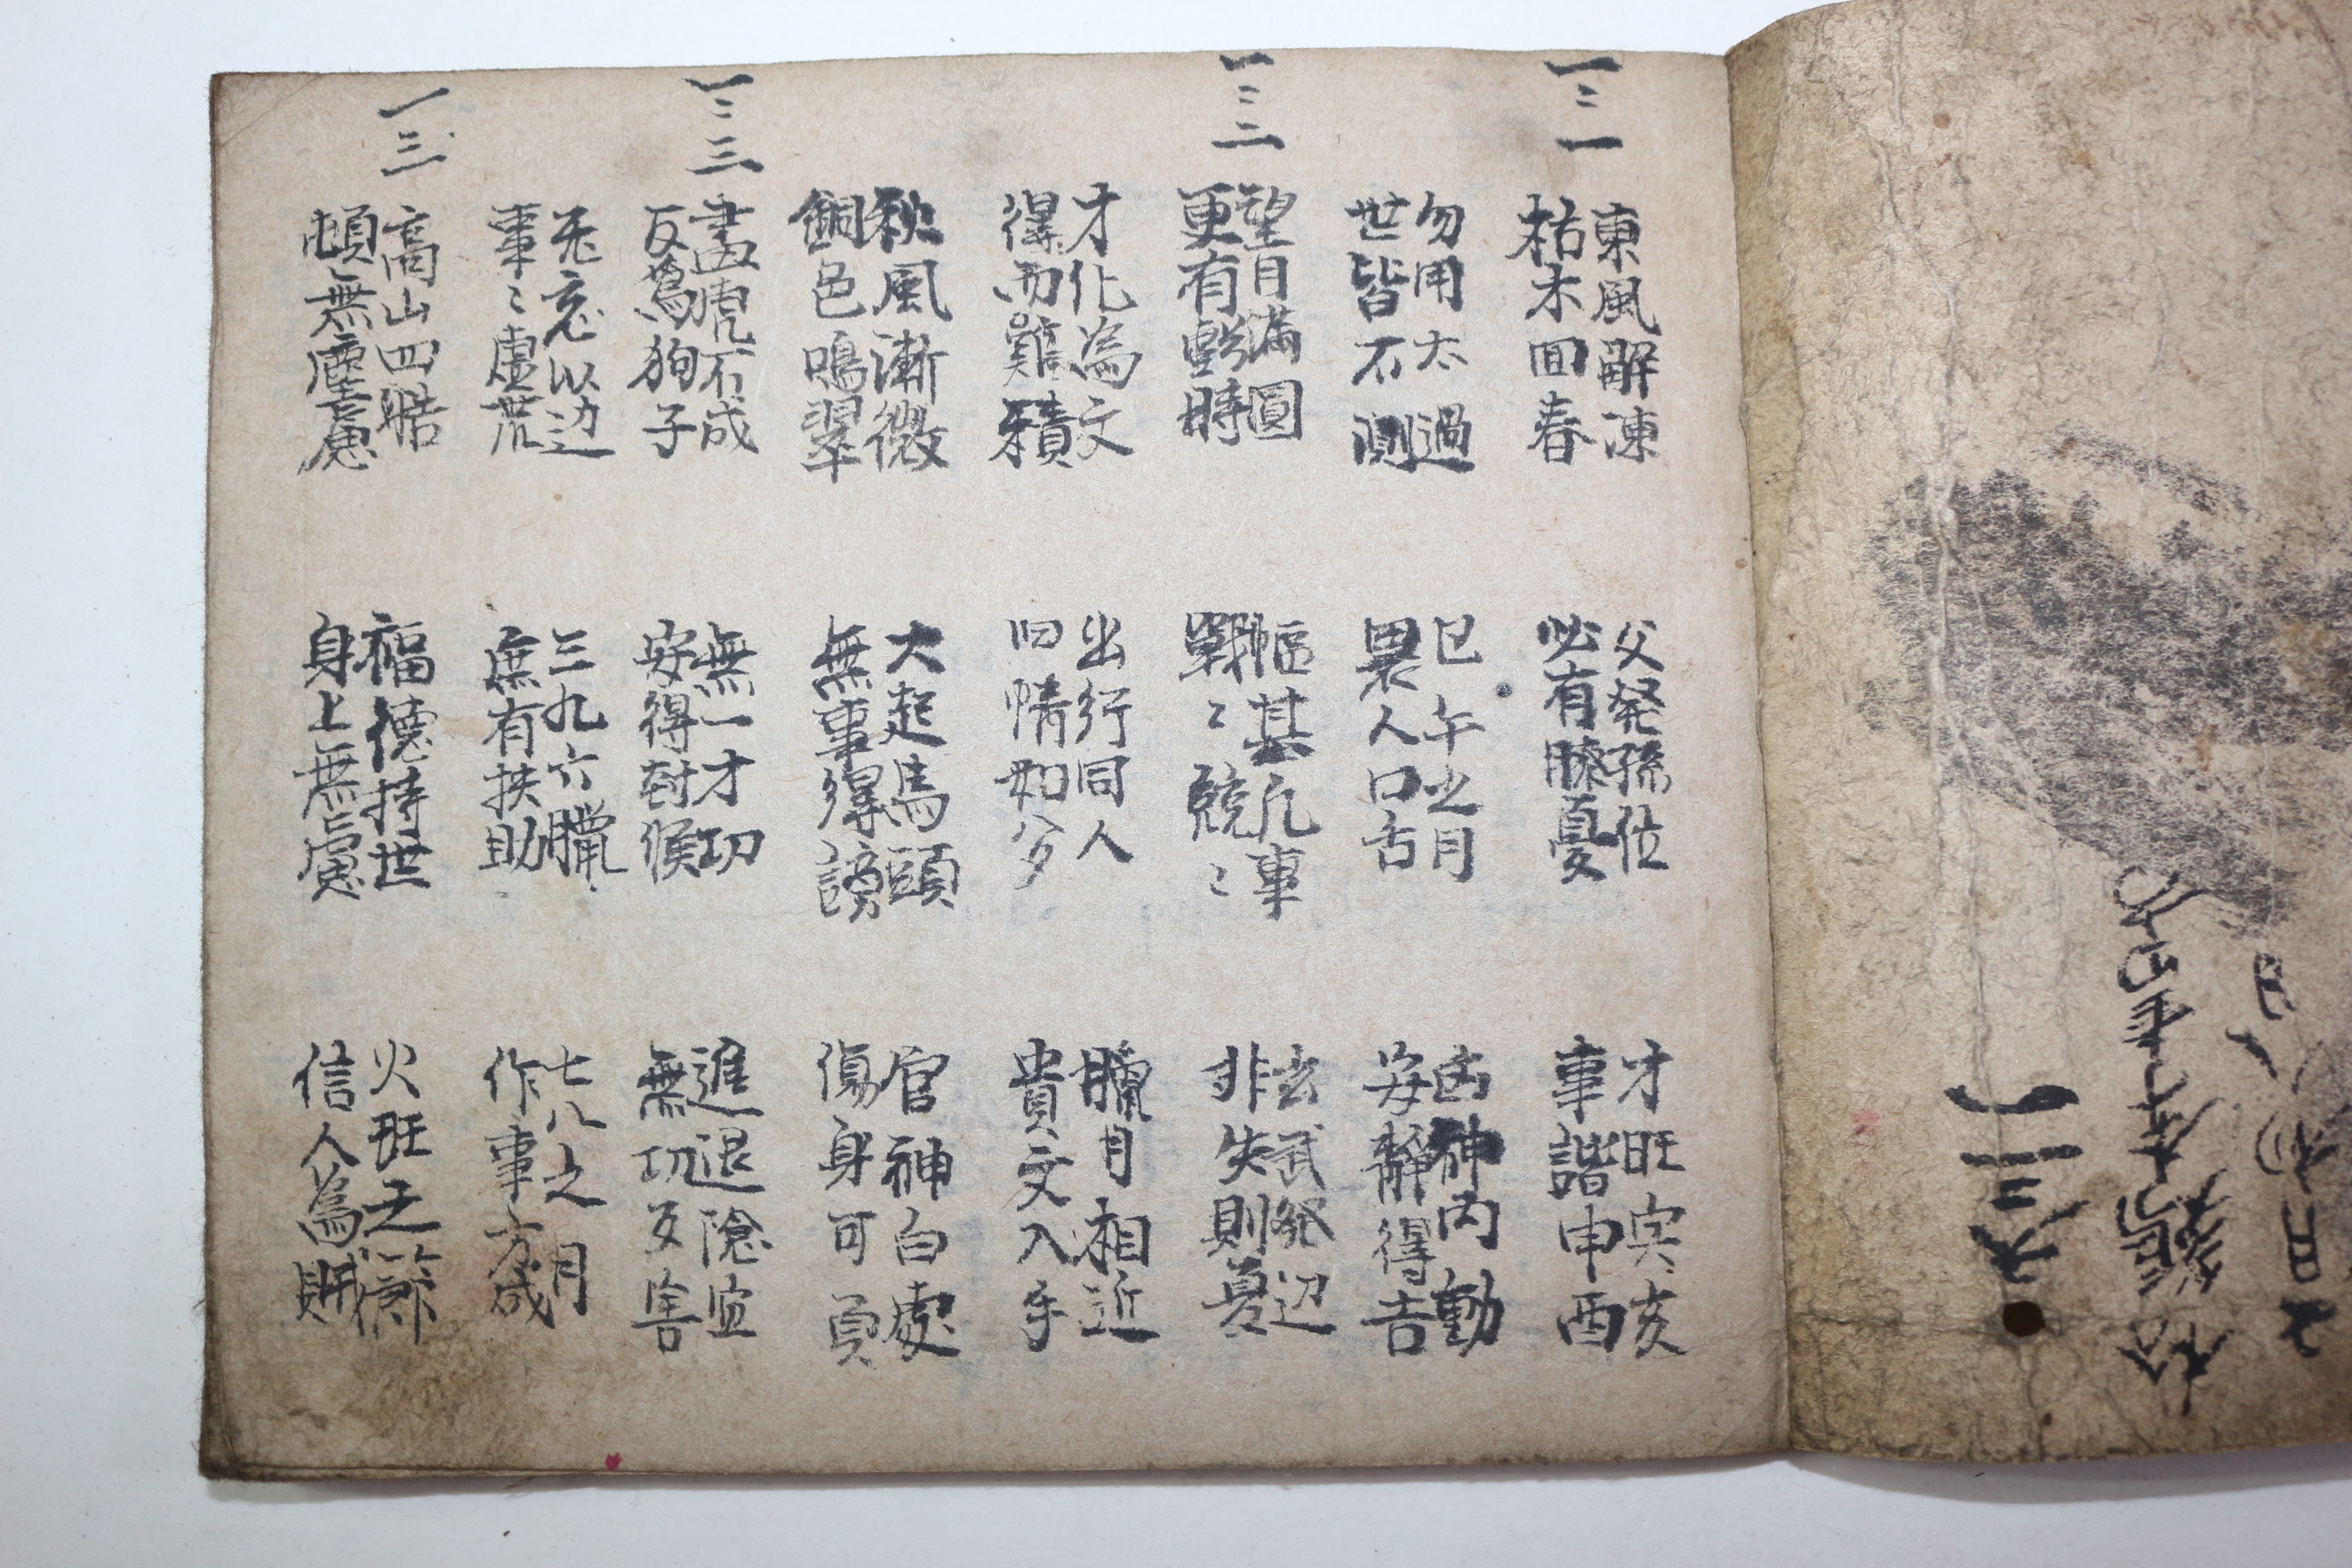 一二一
東風解凍
枯木回春
父発孫位
必有膝憂
才旺寅亥
事諧申酉
勿用太過
世皆不測
巳午之月
畏人口舌
凶神內動
安静得吉
一二二
望月滿圓
更有虧時
凡事
戰〻兢〻
玄武発辺
非失則憂
才化為文
得而難積
出行同人
旧情如分
臘月相近
貴文入手
秋風漸微
銅色鳴翠
大起馬頭
無事得謗
官神白處
傷身可負
一二三
畫虎不成
反為狗子
無一才功
安得封侯
進退隂宜
無功反害
无妄以边
事〻虛荒
三九六臘
庶有扶助
七八之月
作事方成
一三
高山四晧
頓無塵慮
福德持世
身上無慮
火旺之節
信人為賊